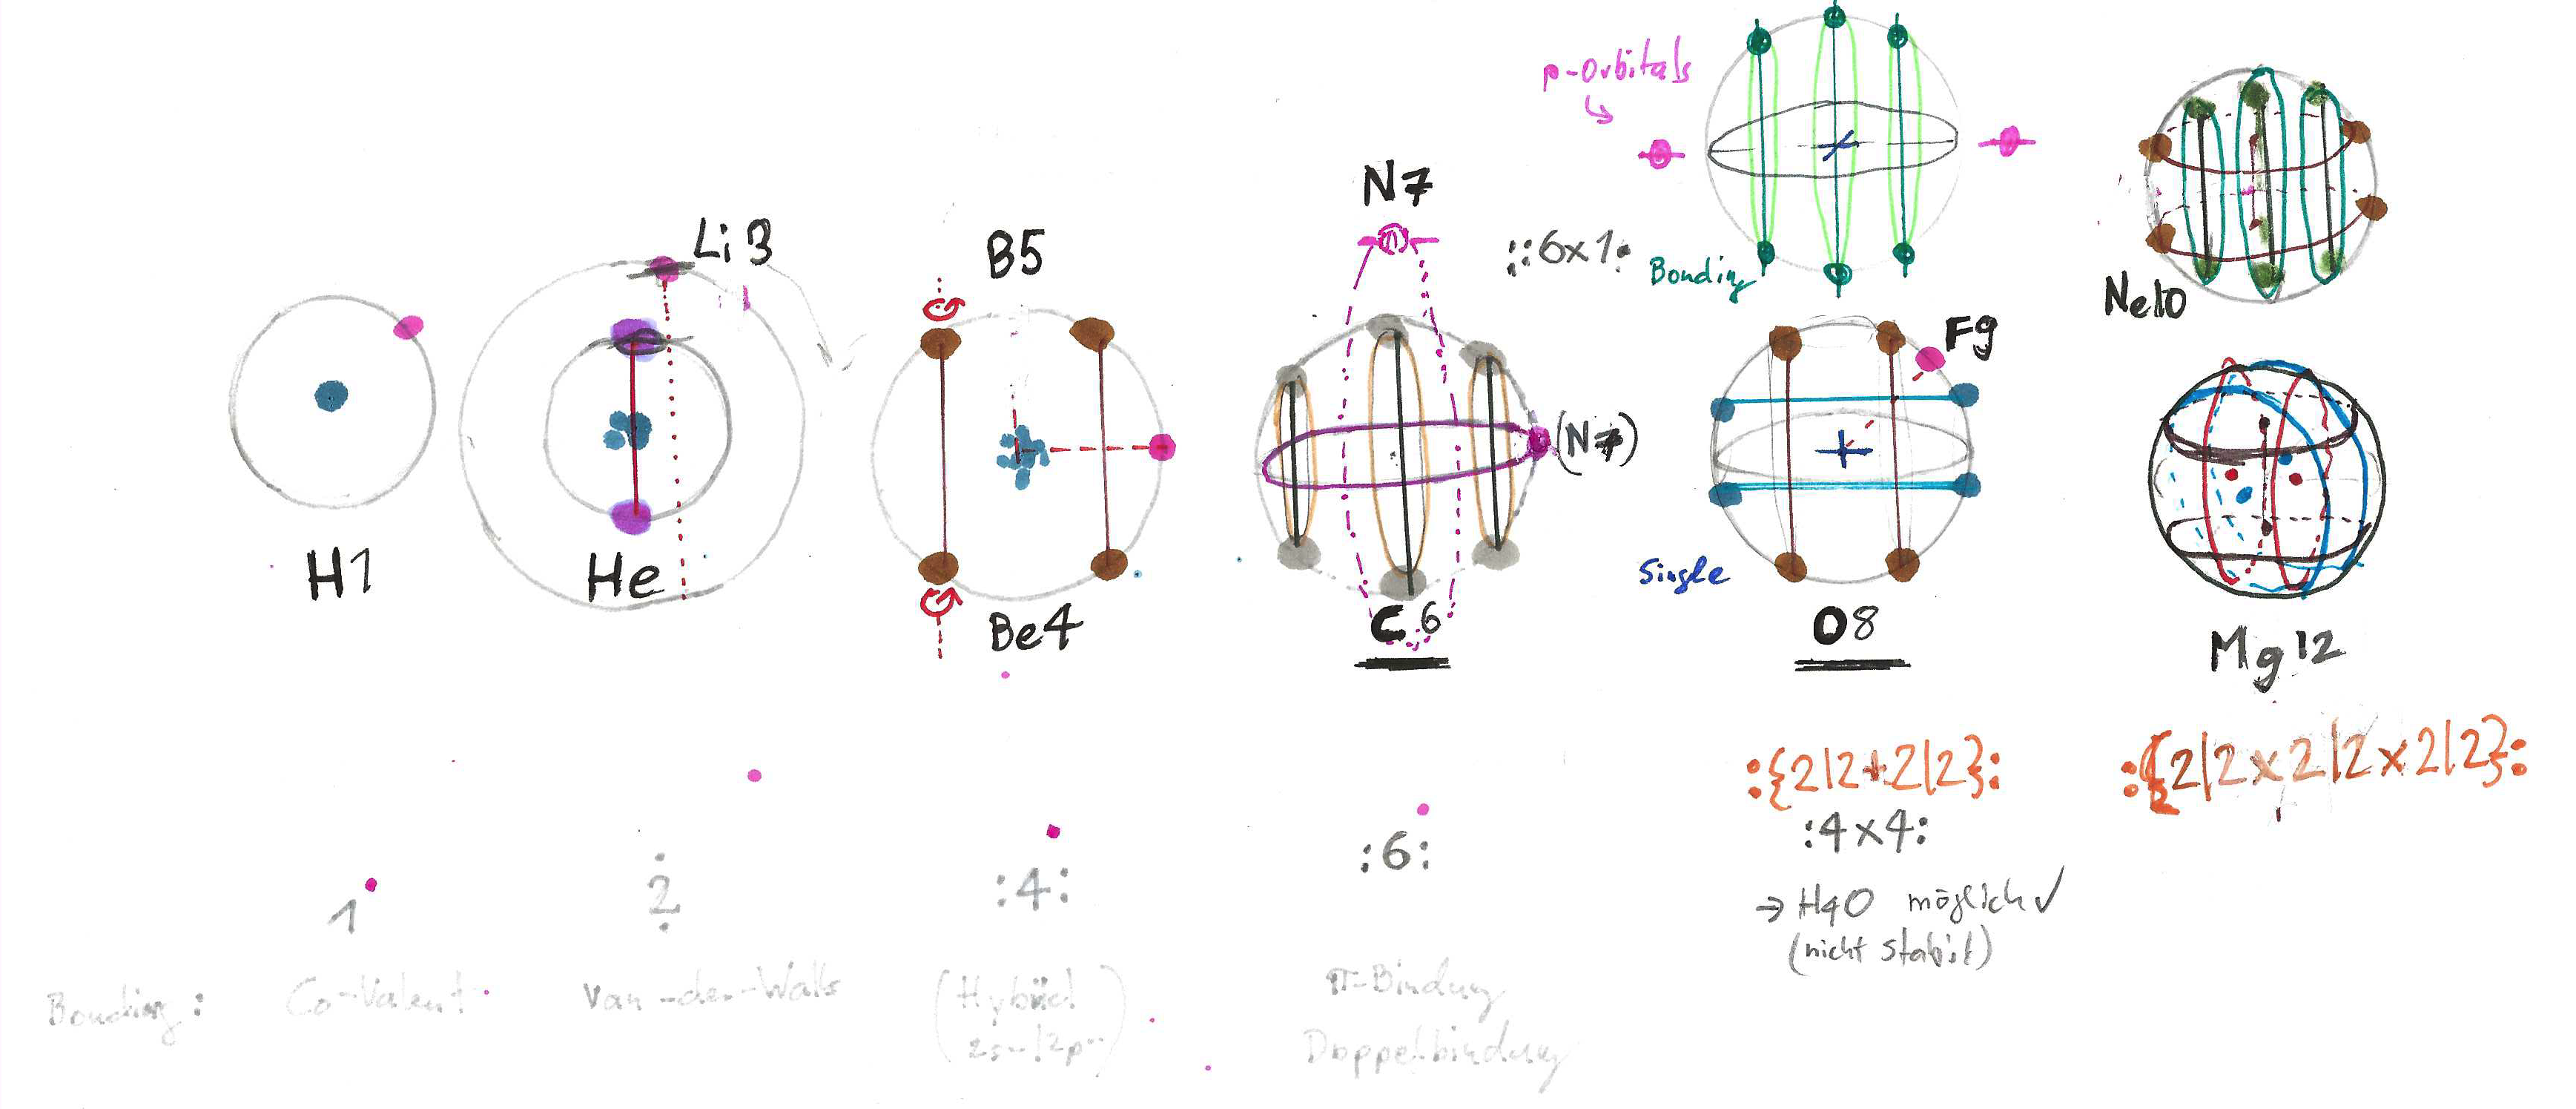 H1
Li3
He
B5
Be4
N7
(N7)
C6
p-Orbitals
::6x1:
Bonding
Single
F9
O8
Ne10
Mg12
1
2
:4:
:6:
:{2|2+2|2}:
:4x4:
→ H4O möglich ✓
(nicht stabil)
:{2|2x2|2x2|2}:
Bonding:
Co-Valent
Van-der-Walls
(Hybrid
2s-/2p-)
π-Bindung
Doppelbindung